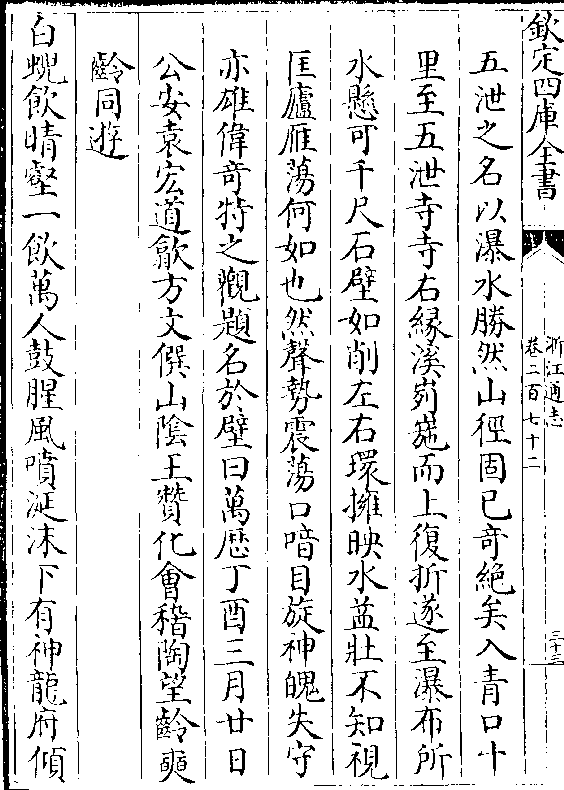 欽定四庫全書
浙江通志
卷二百七十二
三十三
五泄之名以瀑水勝然山徑固已奇絶矣入青口十
里至五泄寺寺右緣溪岃崺而上復折遂至瀑布所
水懸可千尺石壁如削左右環擁映水益壯不知視
匡廬雁蕩何如也然聲勢震蕩口喑目旋神魄失守
亦雄偉奇特之觀題名於壁曰萬歴丁酉三月廿日
公安袁宏道歙方文僎山陰王贊化會稽陶望齡奭
齡同遊
白蜺飲晴壑一飲萬人鼓腥風噴涎沫下有神龍府傾